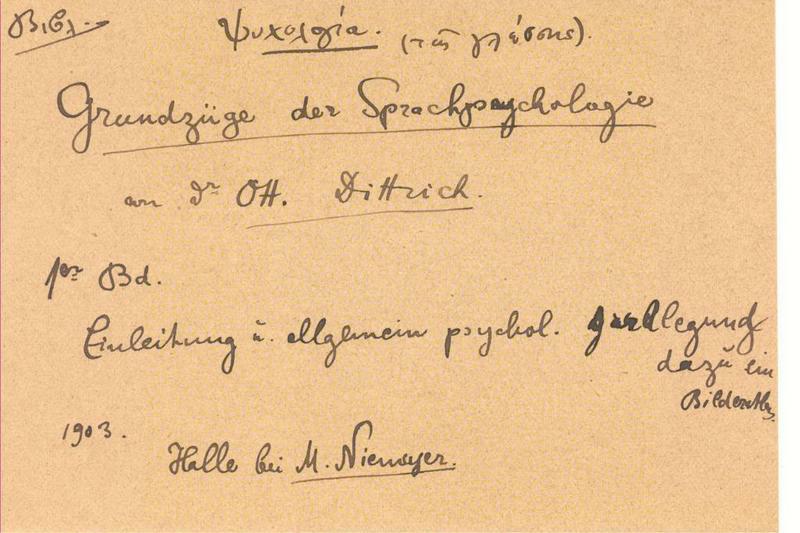 Βιβλ.
Ψυχολογία. (τῆς γλώσσης).
Grundzüge der Sprachpsychologie
von Dr Ott. Dittrich.
1er Bd.
Einleitung u. allgemein psychol. Grundlegung
dazu ein
Bilderatlas.
1903.
Halle bei M. Niemeyer.